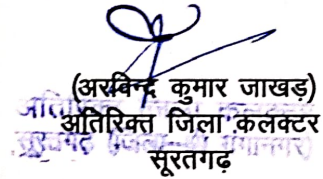 (अरविन्द कुमार जाखड़)
अतिरिक्त जिला कलक्टर
सूरतगढ़